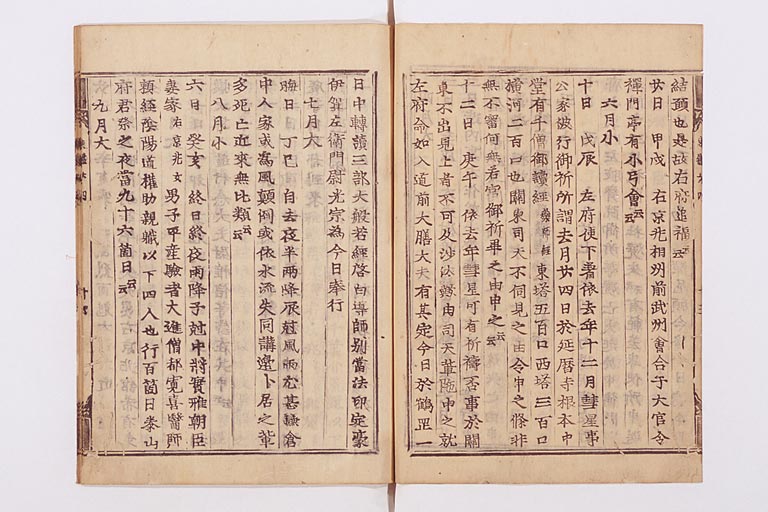 結願也是故右府追福云云
廿日 甲戌 右京兆相州前武州會合于大官令
禪門亭有小弓會云云
六月小
十日 戊辰 左府使下著依去年十二月彗星事
公家被行御祈所謂去月廿四日於延曆寺根本中
堂有千僧御讀經藥師經東塔五百口西塔三百口
橫河二百口也關東司天不伺見之由令申之條非
無不審何無若宮御祈乎之由申之云云
十二日 庚午 依去年彗星可有祈禱否事於關
東不出見上者不可及沙汰歟由司天輩雖申之就
左府命如入道前大膳大夫有其定今日於鶴罡一
日中轉讀三部大般若經啓白導師別當法印定豪
伊賀左衞門尉光宗爲今日奉行
七月大
晦日 丁巳 自去夜半雨降辰尅風烈尤甚鎌倉
中人家或爲風顚倒或依水流失同講邊卜居之輩
多死亡近來無比類云云
八月小
六日 癸亥 終日終夜雨降子尅中將實雅朝臣
妻家右京兆女男子平産驗者大進僧都寬喜醫師
賴經陰陽道權助親職以下四人也行百箇日泰山
府君祭之夜當九十六箇日云云
九月大